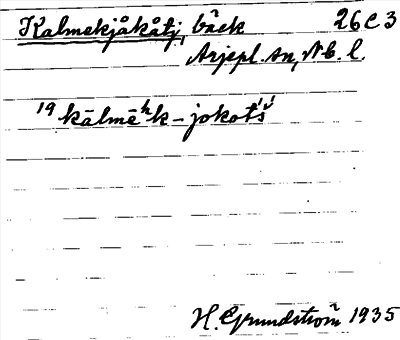 Kalmekjåkåtj, bäck 26C3
Arjepl. sn, Nb. l.
19 kālmēʰk-jokotś́
H. Grundström 1935